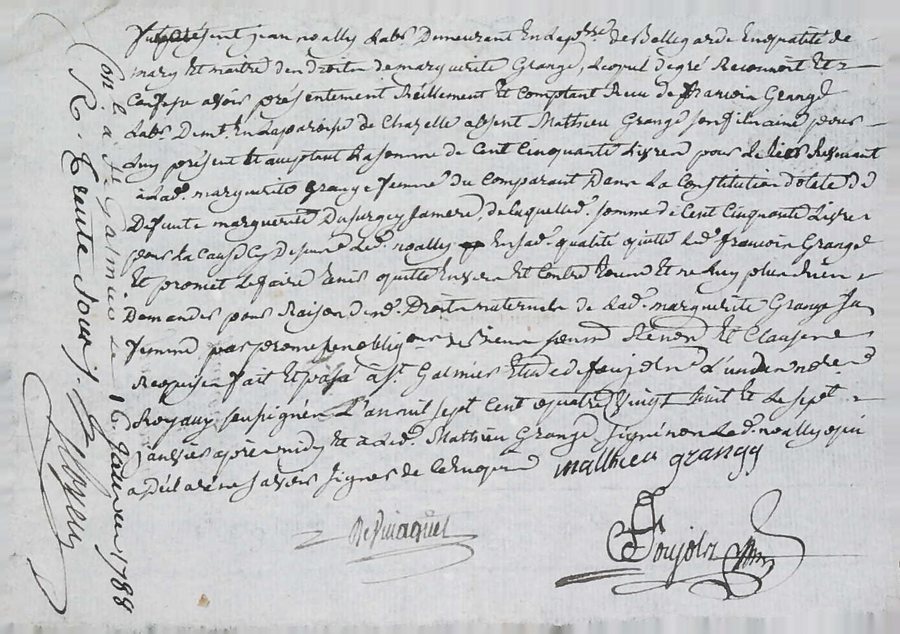 Fut présent jean noally Labr Demeurant En La psse de Bellegarde En qualité de
mary Et maitre des droits de marguerite Grange, Lequel de gré Reconnoit Et
Confesse avoir présentement Réellement Et Comptant Reçu de francois Grange
Labr Demt En La paroisse de Chazelle absent Mathieu Grange son fils aîné pour
Luy présent Et acceptant La somme de Cent Cinquante Livres pour Le Revenant
à Lad. marguerite Grange femme du Comparant Dans La Constitution dotale de
Defunte marguerite Dusurgey sa mere, de laquelle d. somme de Cent Cinquante Livres
pour La Cause Cy Dessus Led. noally En sad. qualité quitte Led. francois Grange
Et promet Le faire tenir quitte Envers Et Contre tous Et ne Luy plus Rien
Demander pour Raison desd. Droits maternels de Lad. marguerite Grange sa
femme par promesse oblig.ons de biens soumd Renond Et Clauses
Requises fait Et passé à St. Galmier Etude de foujols L'un des notes
Royaux soussignés L'an mil sept Cent quatre Vingt huit Et Le sept
janvier après midy Et a Led. Mathieu Grange signé non Led. noally qui
a Déclaré ne savoir signer de Ce Enquis
matthieu grangy
foujols
Con.lé à St Galmier Le 16 Janvier 1788
R. trente sous